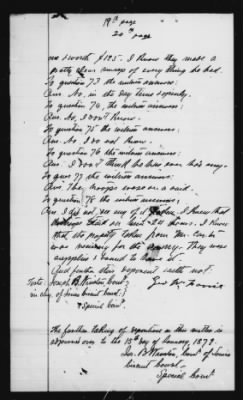 19th page
20th page
was worth $125. I know they made a
pretty clean sweep of everything he had.
To question 73 the witness answers:
Ans. No, in the day time openly.
To question 74, the witness answers:
Ans. No, I don't know.
To question 75 the witness answers:
Ans. No, I do not know.
To question 76 the witness answers:
Ans. I don't think he has ever had any.
To ques 77 the witness answers:
Ans. The troops were on a raid.
To question 78 the witness answers:
Ans. I did not see any of it taken. I knew that
I know
that the property taken from Mr.
was necessary for the army. They were
supplies & bound to have it.
And further this deponent saith not.
Teste: Joseph B.
Special Comr.
The further taking of depositions in this matter is
adjourned over to the 15th day of January, 1872.
Jos. B.
Special Comr.